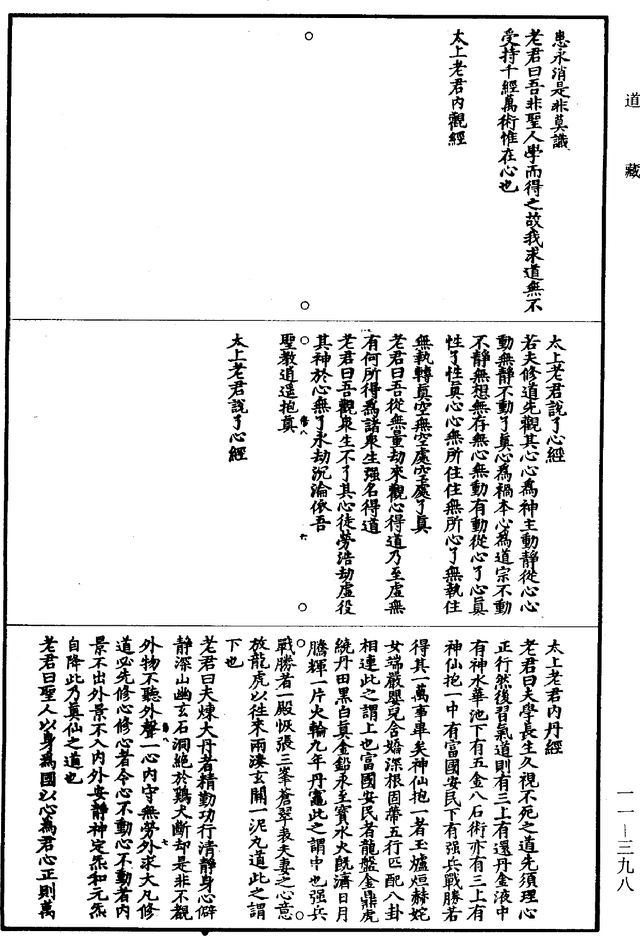 道藏
患永消是非莫識
老君曰吾非聖人學而得之故我求道無不
受持千經萬術惟在心也
太上老君內觀經
太上老君說了心經
若夫修道先觀其心心為神主動靜從心心
動無靜不動了真心為禍本心為道宗不動
不靜無想無存無心無動有動從心了心真
性了性真心心無所住住無所心了無執住
無執轉真空無空處空處了真
老君曰吾從無量劫來觀心得道乃至虛無
有何所得為諸衆生强名得道
老君曰吾觀衆生不了其心徒勞浩劫虛役
其神於心無了永劫沉淪依吾
聖教逍遥抱真
太上老君說了心經
太上老君內丹經
老君曰夫學長生久視不死之道先須理心
正行然後習氣道則有三上有還丹金液中
有神水華池下有五金八石術亦有三上有
神仙抱一中有富國安民下有强兵戰勝若
得其一萬事畢矣神仙抱一者玉爐烜赫姹
女端嚴嬰兒含嬌深根固蔕五行匹配八卦
相連此之謂上也富國安民者龍盤金鼎虎
繞丹田黑白真金鉛汞至寶水火既濟日月
騰輝一片火輪九年丹竈此之謂中也强兵
戰勝者一殿恢張三峯蒼翠表夫妻之心意
放龍虎以往來兩湊玄關一泥九道此之謂
下也
老君曰夫煉大丹者精勤功行清靜身心僻
靜深山幽玄石洞絕於鷄犬斷却是非不觀
外物不聽外聲一心內守無勞外求大凡修
道必先修心修心者令心不動心不動者內
景不出外景不入內外安靜神定炁和元炁
自降此乃真仙之道也
老君曰聖人以身為國以心為君心正則萬
一一—三九八